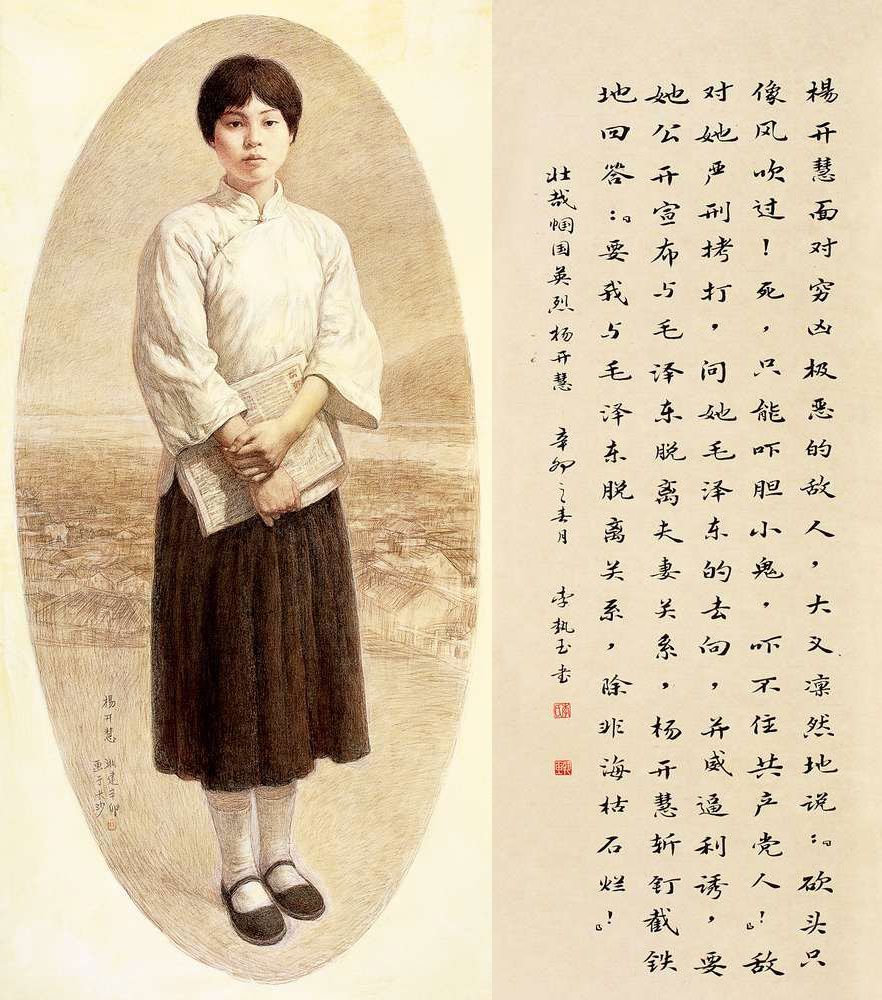 楊开慧面对穷凶极恶的敌人，大义凛然地说：『砍头只
像风吹过！死，只能吓胆小鬼，吓不住共产党人！』敌
对她严刑拷打，问她毛泽东的去向，并威逼利诱，要
她公开宣布与毛泽东脱离夫妻关系，杨开慧斩钉截铁
地回答：『要我与毛泽东脱离关系，除非海枯石烂！』
壮哉帼国英烈杨开慧 辛卯之春月 李执玉书
楊开慧 辛卯
画于长沙